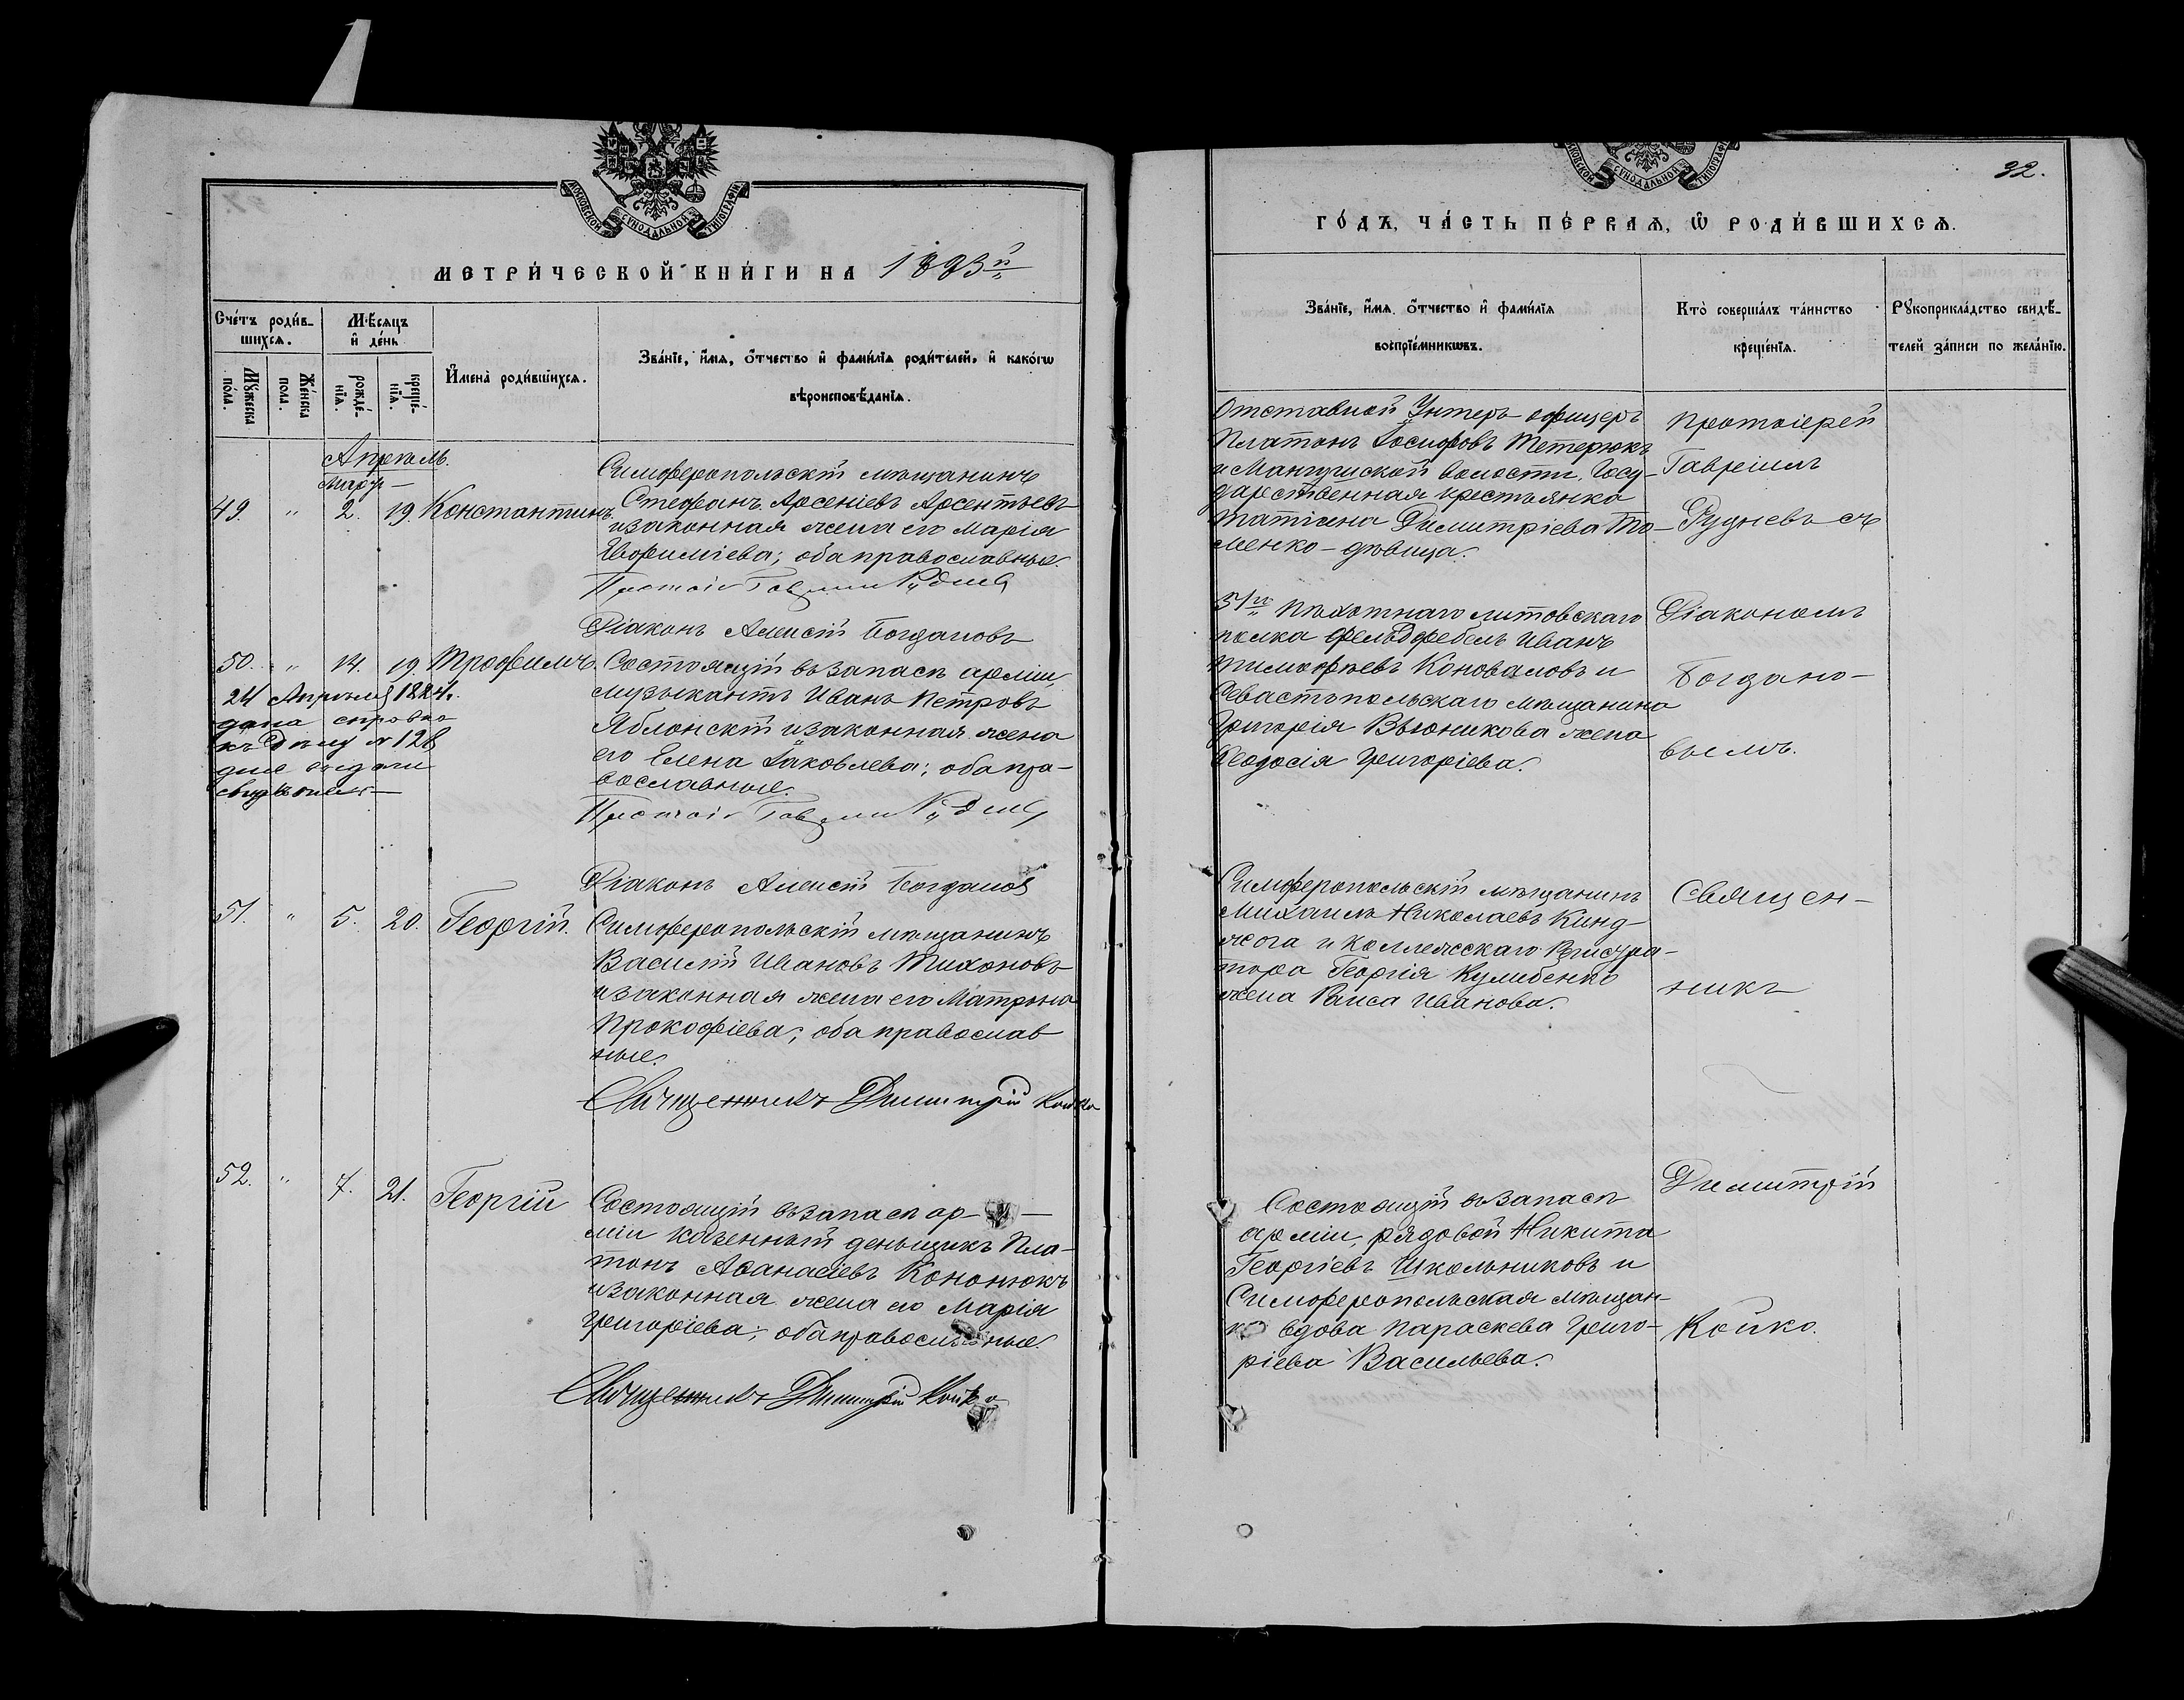 МОСКОВСКОЙ СѴНОДАЛЬНОЙ ТИПОГРАФІИ
МЕТРИ́ЧЕСКОЙ КНИ́ГИ НА 1883й
Сче́тъ роди́в-
шихсѧ.
Мѣ́сѧцъ
и҆ де́нь
И҆мена̀ роди́вшихсѧ.
Зва́нїе, и҆́мѧ, ѻ҆́тчество и҆ фами́лїѧ роди́телей, и҆ како́гѡ
вѣроисповѣ́данїѧ.
Мꙋ́жеска
по́ла.
Же́нска
пола.
рожде́-
нїѧ.
креще́-
нїѧ.
Апрѣль.
49. " 2. 19. Константинъ.
Симферопольскій мѣщанинъ
Стефанъ Арсеніевъ Арсентьевъ
и законная жена его Марія
Евфиміева; оба православные.
Діаконъ Алексій Богдановъ
50. " 14. 19. Трофимъ.
Состоящій въ запасѣ арміи
музыкантъ Иванъ Петровъ
Яблонскій и законная жена
его Елена Іаковлева; оба пра-
вославные.
24 Апрѣля 1884г.
дана справка
къ дѣлу № 128
Діаконъ Алексій Богдановъ
51. " 5. 20. Георгій.
Симферопольскій мѣщанинъ
Василій Ивановъ Тихоновъ
и законная жена его Матрона
Прокофіева; оба православ
ные.
Священникъ Димитрій Койко
52. " 7. 21. Георгій
Состоящій въ запасѣ ар-
міи казенный деньщикъ Пла-
тонъ Аѳанасіевъ Кононюкъ
и законная жена его Марія
Григоріева; оба православные.
Священникъ Димитрій Койко
32.
МОСКОВСКОЙ СѴНОДАЛЬНОЙ ТИПОГРАФІИ
ГО́ДЪ, ЧА́СТЬ ПЕ́РВАѦ, Ѽ РОДИ́ВШИХСѦ.
Зва́нїе, и҆́мѧ, ѻ҆́тчество и҆ фами́лїѧ
воспрїе́мникѡвъ.
Кто̀ соверша́лъ та́инство
креще́нїѧ.
Рꙋкоприкла́дство свидѣ́-
телей за́писи по жела́нїю.
Отставной Унтеръ-офицеръ
Платонъ Іосифовъ Тетерюкъ
и Мангушской волости, Госу-
дарственная крестьянка
Татіана Димитріева То-
менко-дѣвица.
Протоіерей
Гавріилъ
Рудневъ съ
51го Пѣхотнаго Литовскаго
полка фельдфебель Иванъ
Тимофѣевъ Коноваловъ и
Севастопольскаго мѣщанина
Григорія Вьюникова жена
Ѳеодосія Григоріева.
Діакономъ
Богдано-
вымъ.
Симферопольскій мѣщанинъ
Михаилъ Николаевъ Кинд-
жога и Коллежскаго Регистра-
тора Георгія Кулибенко
жена Раиса Иванова.
Священ-
никъ
Состоящій въ запасѣ
арміи, рядовой Никита
Георгіевъ Школьниковъ и
Симферопольская мѣщан-
ка вдова Параскева Григо-
ріева Васильева.
Димитрій
Койко.